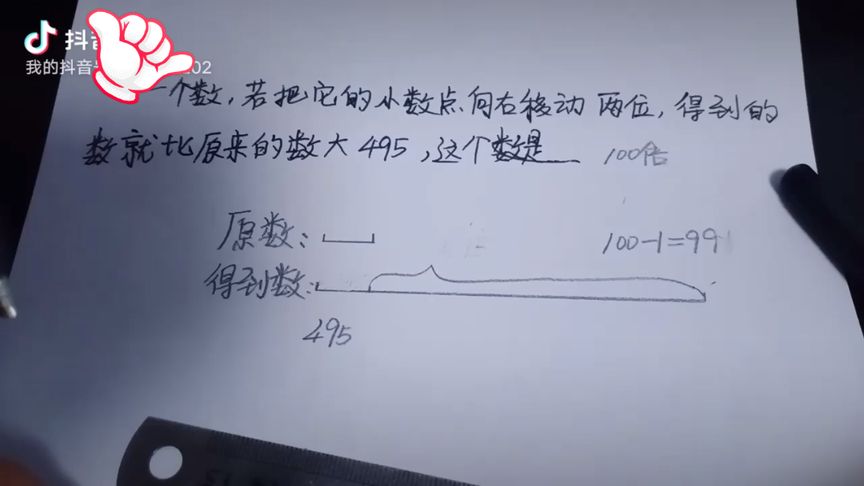 抖
我的抖音
202
一个数，若把它的小数点向右移动两位，得到的
数就比原来的数大495，这个数是__ 100倍
原数：
100-1=99
得到数：
495